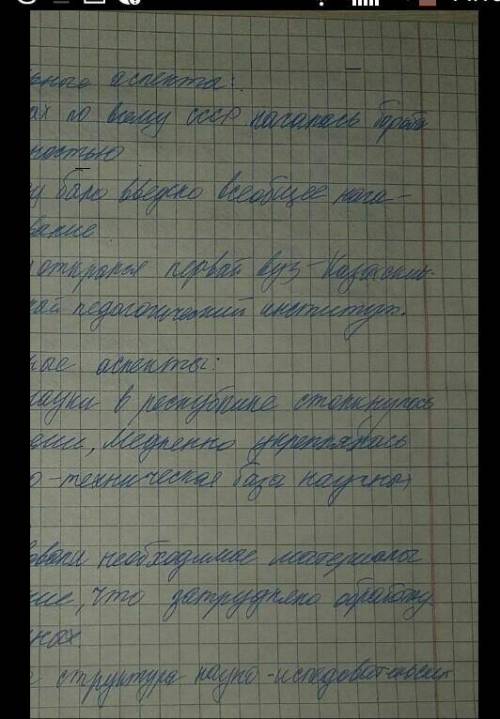 ьного аспекта:
ах по всему СССР началась борьба
ностью
у было введено всеобщее нача-
вание
открылся первый вуз - Казахский-
ный педагогический институт.
ные аспекты:
науки в республике столкнулось
ями, медленно укреплялась
о-техническая база научных
овали необходимые материалы
ние, что затрудняло обработку
нных
структура научно-исследовательских